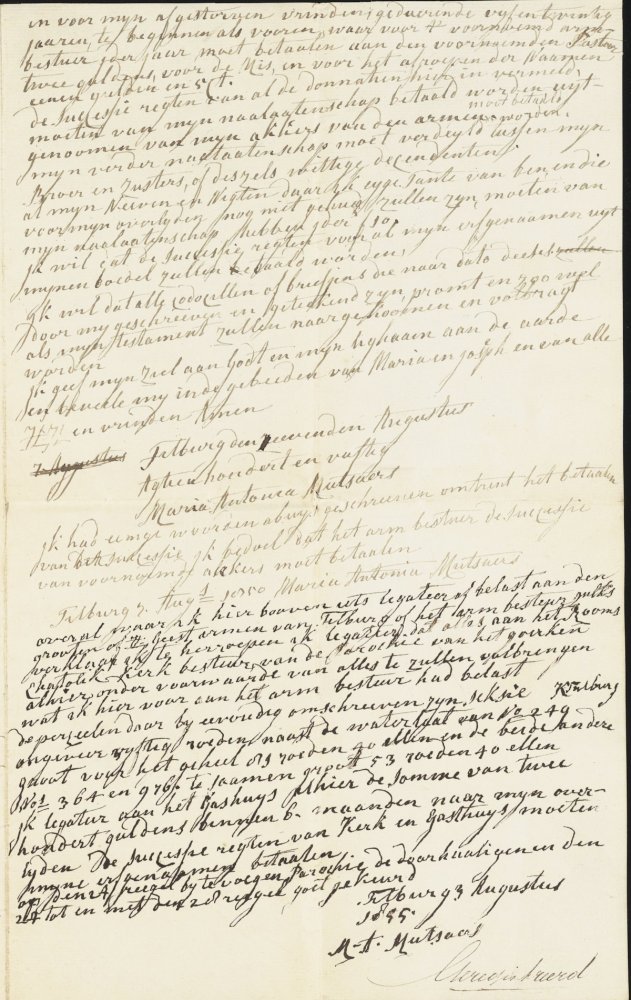 en voor myn afgestorven vrinden, geduerende vyf en twintig
jaaren, te beginnen als vooren, waar voor 't voornoemd arm
bestuer jder jaar moet betaalen aan den voornoemden Pastoor
twee guldens, voor de Mis, en voor het afroepen der Naamen
eenen gulden en 5 Ct.
de Sucsessie regten van al de donnatien hier in vermeld,
moeten van myn naalaatenschap betaald worden uyt-
genoomen van myn akkers van den armen moet betaald worden.
myn verder naalaatenschap moet verdeyld tussen myn
Broer en Zusters, of deszels wittige decendenten;
al myn Neeven en Nigten daar ik eyge Tante van ben, en die
voor myn overlyden nog niet gehuwd zullen zyn, moeten van
myn naalaatenschap hebben jder f 10,
Ik wil dat de sucsessie regten voor al myn erfgenaamen uyt
mynen boedel zullen betaald worden,
Ik wil dat alle codocillen of briefjens die naar dato deeses zullen
door my geschreeven en geteekend zyn, promt en zoo wel
als myn testament zullen naargekoomen en voltragt
worden
Ik geef myn ziel aan Godt en myn lighaam aan de aarde
en beveele my in de gebeeden van Maria en Joseph en van alle
HH en vrinden Amen
7 Augustus Tilburg den zeevenden Augustus
Agtien hondert en vyftig
Maria Antonia Mutsaers
Ik had eenige woorden abuys geschreeven omtrent het betaalen
van de sucsessie, ik bedoel dat het arm bestuer de sucsessie
van voornoemde akkers moet betaalen
Tilburg 7 Augs 1850 Maria Antonia Mutsaers
overal waar ik hier booven iets legateer of belast aan den
grooten of H: Geest armen van Tilburg of het arm bestuer zulks
verklaar ik te herroepen ik legateer dat als aan het Rooms
Chatoliek Kerk bestuer van de Parochie van het goirken
alhier onder voorwaarde van alles te zullen volbrengen
wat ik hier voor aan het arm bestuer had belast
de perseelen daar by eevoudig omschreeven zyn, seksie K Tilburg
ongeveer vystig roeden, naast de waterlaat van No 249
groot voor het geheel 81 roeden 40 ellen en de beide andere
Nos 364 en 976 te saamen groot 53 roeden 40 ellen
ik legateer aan het Gashuys alhier de Somme van twee
hondert guldens binnen 6 maanden naar myn over-
lyden de sucsessie regten van Kerk en Gasthuys moeten
myne erfgenaamen betaalen
op den 24 reegel by te voegen Parochie, de doorhaaligen en den
24 tot en met den 28 reegel goet gekeurd
Tilburg 3 Augustus
1855
M. A. Mutsaers
Geregistreerd